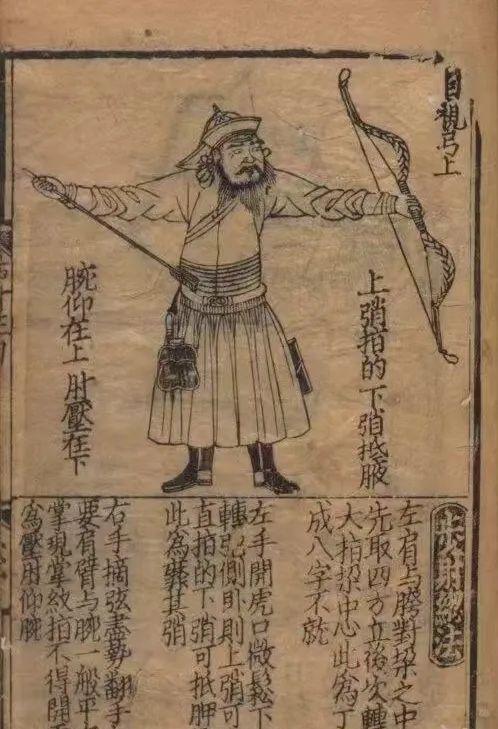 目弓上
上弰指的下弰抵腋
腕仰在上肘壓在下
步射總法
左肩与胯對垛之中
先取四方立後次轉
大指垛中心此爲丁
成八字不就
左手開虎口微鬆下
轉弝側卧則上弰可
直指的下弰可抵胛
此爲靡其弰
右手摘弦盡勢翻手
要肩臂与腕一般平
掌現掌紋指不得開
爲壓肘仰腕